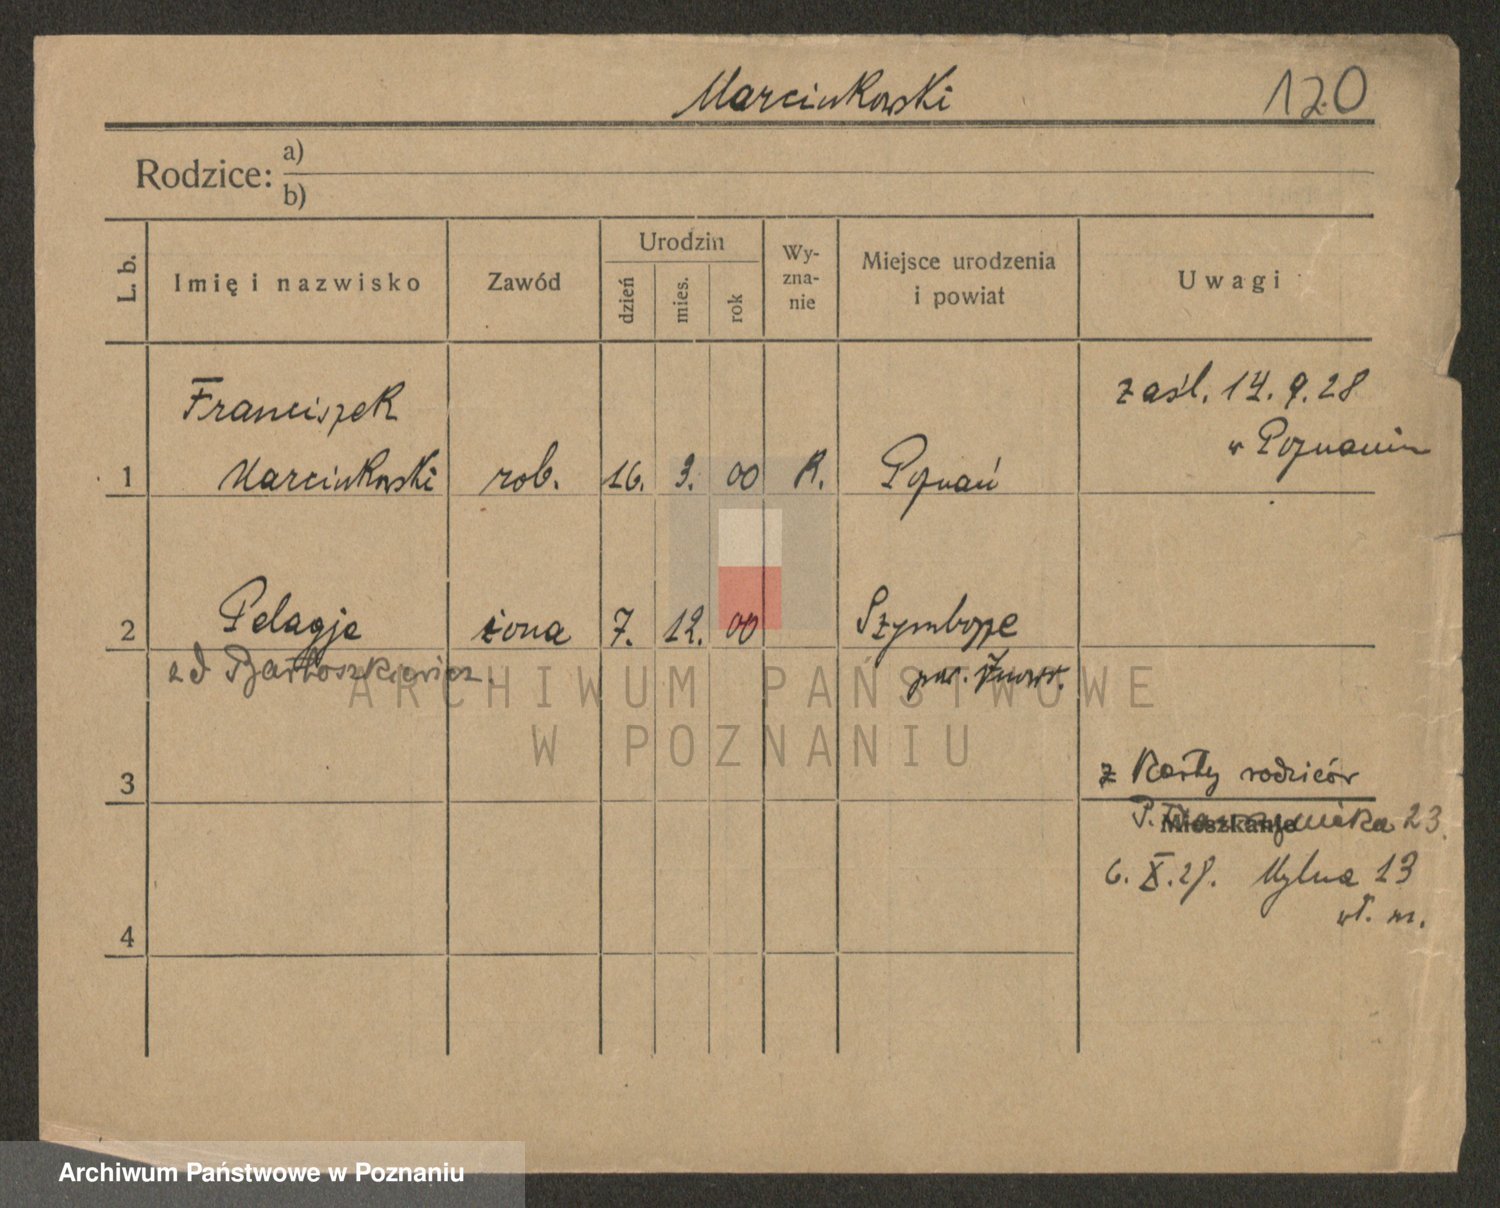 Marcinkowski 120
Rodzice: a)
b)
L. b. Imię i nazwisko Zawód Urodzin dzień mies. rok Wy-zna-nie Miejsce urodzenia i powiat Uwagi
Franciszek zaśl. 14. 9. 28
w Poznaniu
1 Marcinkowski rob. 16. 3. 00 R. Poznań
2 Pelagje żona 7. 12. 00 Szymborze
zd Bartoszkiewicz. pow. Inowr.
ARCHIWUM PAŃSTWOWE
W POZNANIU
z Karty rodziców
3
P. 23.
Mieszkanie
6. X. 28. Mylna 13
wł. m.
4
Archiwum Państwowe w Poznaniu